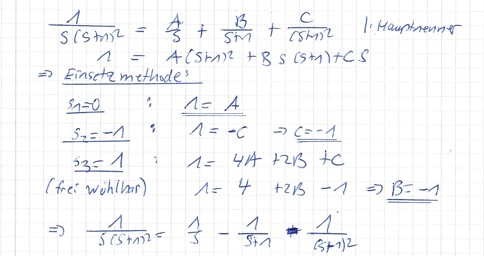 1/(s(s+1)²) = A/s + B/(s+1) + C/(s+1)² |· Hauptnenner
1 = A(s+1)² + B s (s+1) + C s
⇒ Einsetzmethode:
s₁=0 : 1 = A
s₂=-1 : 1 = -C ⇒ C=-1
s₃=1 : 1 = 4A +2B +C
(frei wählbar) 1 = 4 +2B -1 ⇒ B=-1
⇒ 1/(s(s+1)²) = 1/s - 1/(s+1) - 1/(s+1)²